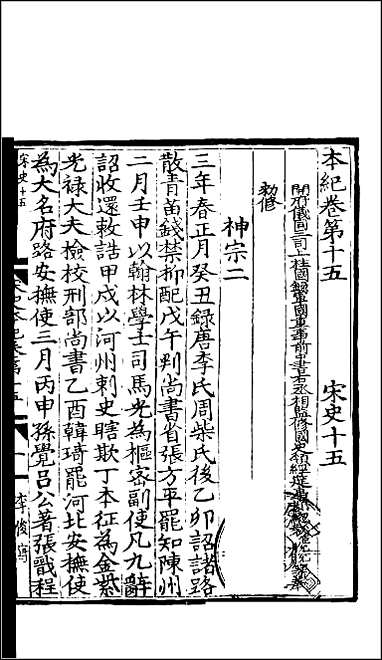 本紀卷第十五　宋史十五
開府儀同三司上柱國錄軍國重事前中書右丞相監修國史領經筵事都總裁臣脫脫等奉
勑修
神宗二
三年春正月癸丑錄唐李氏周柴氏後乙卯詔諸路
散青苗錢禁抑配戊午判尚書省張方平罷知陳州
二月壬申以翰林學士司馬光為樞密副使凡九辭
詔收還敕誥甲戌以河州刺史瞎欺丁木征為金紫
光祿大夫檢校刑部尚書乙酉韓琦罷河北安撫使
為大名府路安撫使三月丙申孫覺呂公著張戩程
宋史十五
李俊寫